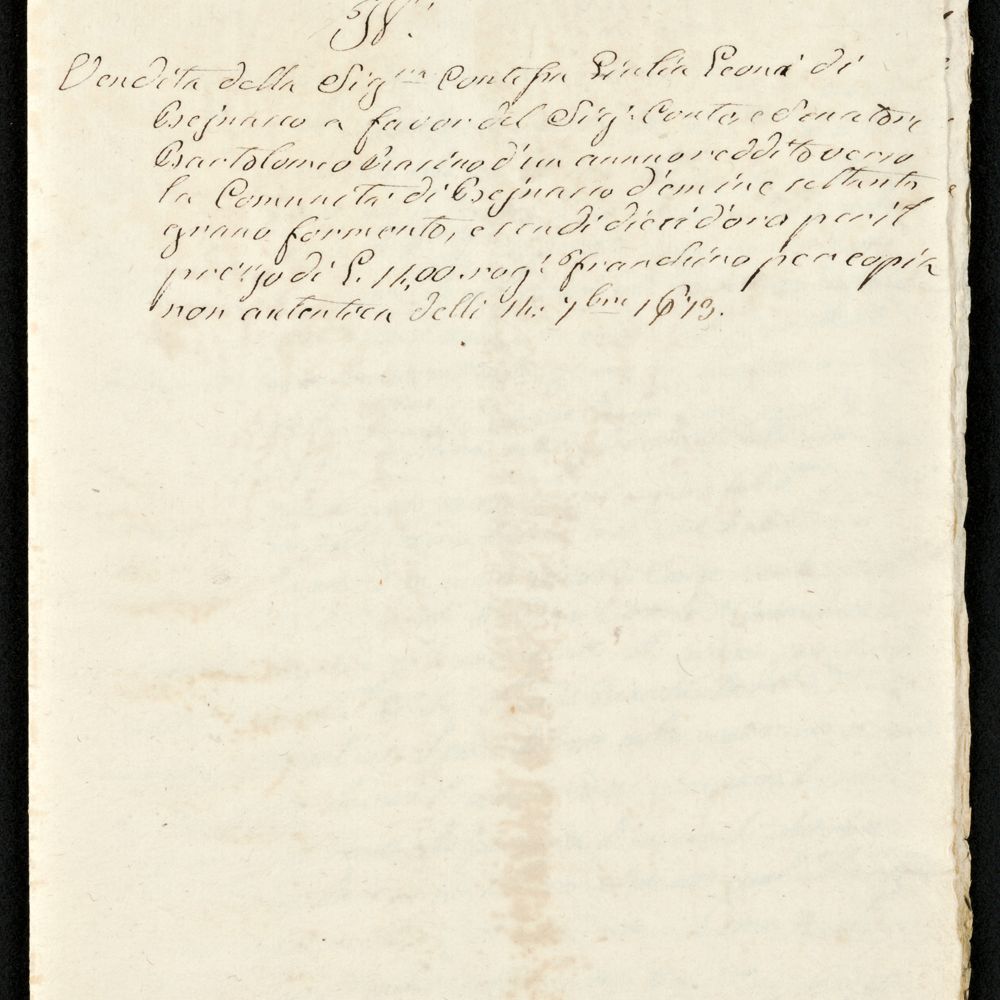 Vendita della Sig.ra Contessa Giulia Leoni di
a favor del Sig.r Conte, e Senatore
Bartolomeo Giasino d'un annuo reddito verso
la Comunità di d'emine settanta
grano formento, e scudi dieci d'oro per il
prezzo di L. 1400. rog.o Franchino per copia
non autentica delli 14. 7bre 1673.